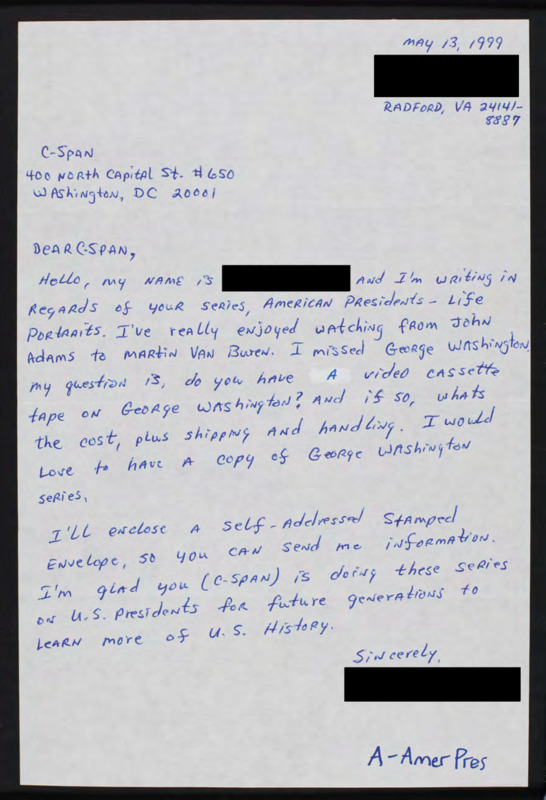 MAY 13, 1999
RADFORD, VA 24141-
8887
C-SPAN
400 NORTH CAPITAL St. #650
WASHINGTON, DC 20001
DEAR C-SPAN,
Hello, my NAME is AND I'm writing in
REGARDS of your series, AMERICAN PRESIDENTS - Life
PORTRAITS. I've really enjoyed watching from JOHN
ADAMS to MARTIN VAN BUREN. I missed George Washington.
my question is, do you have A video cassette
tape on George Washington? And if so, whats
the cost, plus shipping and handling. I would
Love to have a copy of George Washington
series.
I'll enclose a self-Addressed Stamped
Envelope, so you can send me information.
I'm glad you (C-SPAN) is doing these series
on U.S. Presidents for future generations to
LEARN more of U.S. History.
Sincerely,
A-Amer Pres